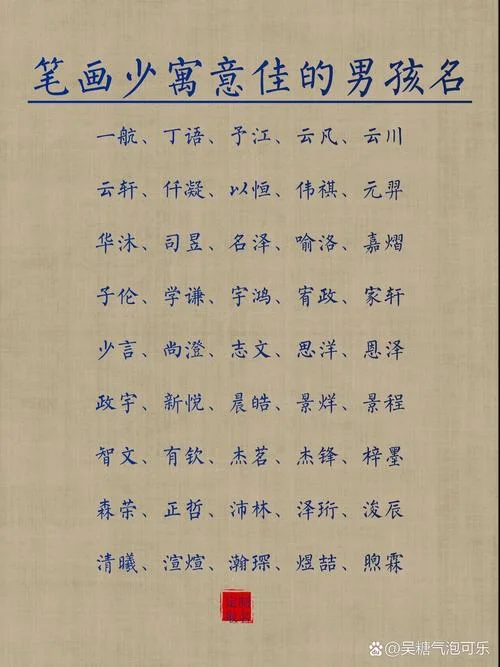 笔画少寓意佳的男孩名
一航、丁语、予江、云凡、云川
云轩、仟凝、以恒、伟祺、元羿
华沐、司昱、名泽、喻洛、嘉熠
子伦、学谦、宇鸿、宥政、家轩
少言、尚澄、志文、思洋、恩泽
政宇、新悦、晨皓、景烊、景程
智文、有钦、杰茗、杰锋、梓墨
森荣、正哲、沛林、泽珩、浚辰
清曦、渲煊、瀚琛、煜喆、煦霖
@吴糖气泡可乐